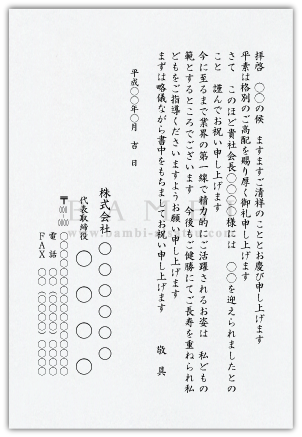 拝啓　〇〇の候　ますますご清祥のこととお慶び申し上げます
平素は格別のご高配を賜り厚く御礼申し上げます
さて　このほど貴社会長〇〇〇〇様には　〇〇を迎えられましたとの
こと　謹んでお祝い申し上げます
今に至るまで業界の第一線で精力的にご活躍されるお姿は　私どもの
範とするところでございます　今後もご健勝にてご長寿を重ねられ私
どもをご指導くださいますようお願い申し上げます
まずは略儀ながら書中をもちましてお祝い申し上げます
敬具
平成〇〇年〇月　吉日
株式会社　〇〇〇〇〇
代表取締役　〇〇〇〇
〒000-0000　〇〇〇〇〇〇〇〇〇〇
電話　〇〇〇〇〇〇〇〇〇〇
FAX　〇〇〇〇〇〇〇〇〇〇